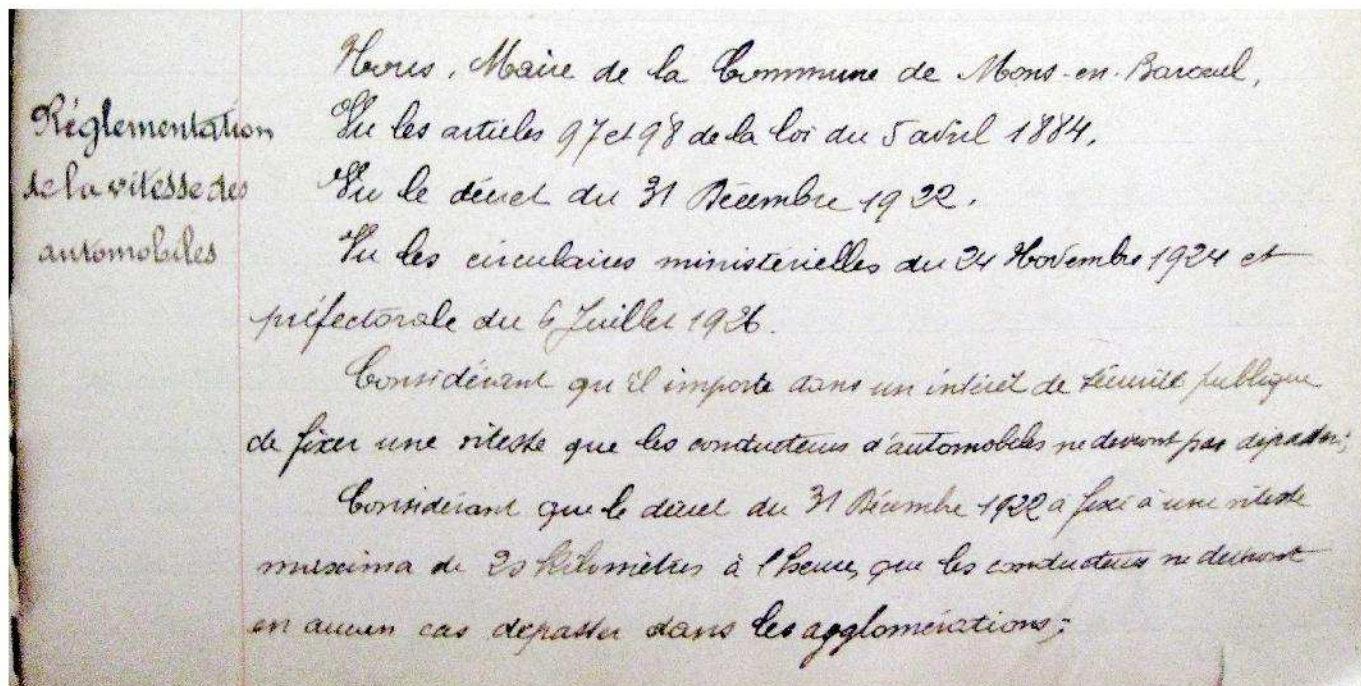 Nous, Maire de la Commune de Mons-en-Baroeul,
Réglementation
de la vitesse des
automobiles
Vu les articles 97 et 98 de la loi du 5 avril 1884.
Vu le décret du 31 Décembre 1922.
Vu les circulaires ministérielles du 24 Novembre 1924 et
préfectorale du 6 Juillet 1926.
Considérant qu'il importe dans un intérêt de sécurité publique
de fixer une vitesse que les conducteurs d'automobiles ne devront pas dépasser;
Considérant que le décret du 31 Décembre 1922 a fixé à une vitesse
maxima de 20 Kilomètres à l'heure, que les conducteurs ne devront
en aucun cas dépasser dans les agglomérations;